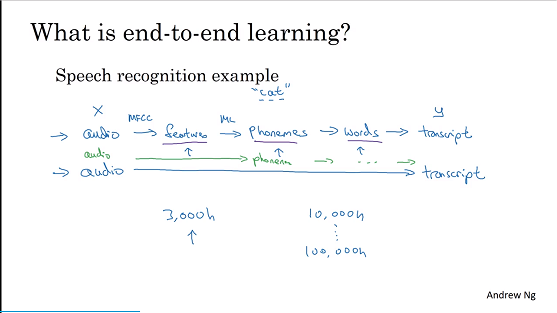 What is end-to-end learning?
Speech recognition example
"cat"
X MFCC ML y
→ audio → features → phonemes → words → transcript
audio → phonem → ... →
→ audio → transcript
3,000h 10,000h
100,000h
Andrew Ng